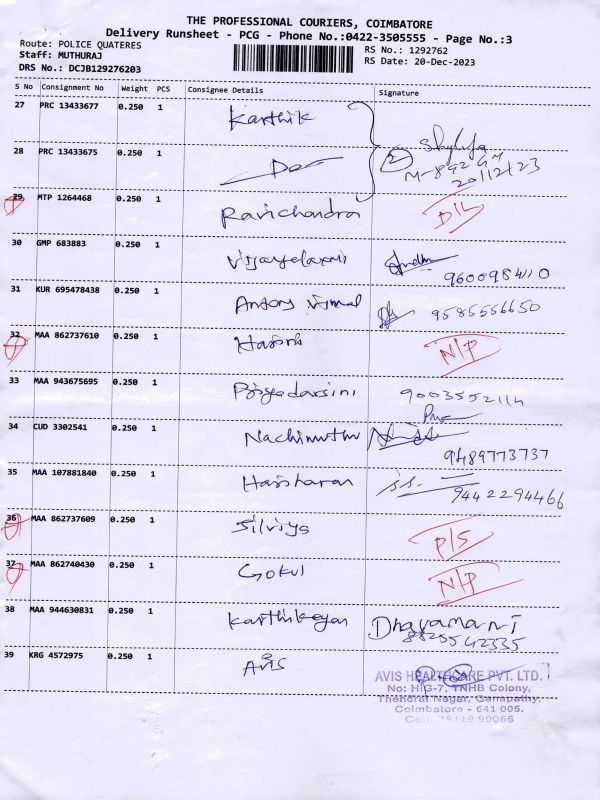 THE PROFESSIONAL COURIERS, COIMBATORE
Delivery Runsheet - PCG - Phone No.:0422-3505555 - Page No.:3
Route: POLICE QUATERES
RS No.: 1292762
Staff: MUTHURAJ
RS Date: 20-Dec-2023
DRS No.: DCJB129276203
S No Consignment No Weight PCS Consignee Details Signature
27 PRC 13433677 0.250 1 Karthik
28 PRC 13433675 0.250 1 Do
2
20/12/23
29 MTP 1264468 0.250 1 Ravichandra D/L
30 GMP 683883 0.250 1 Vijayalaxmi
9600984110
31 KUR 695478438 0.250 1 Antony Vimal 9585556650
32 MAA 862737610 0.250 1 Harish N/P
33 MAA 943675695 0.250 1 Priyadarsini 9003552114
34 CUD 3302541 0.250 1 Nachimuthu
9489773737
35 MAA 107881840 0.250 1 Hariharan
9442294466
36 MAA 862737609 0.250 1 Silviya P/S
37 MAA 862740430 0.250 1 Gokul N/P
38 MAA 944630831 0.250 1 Karthikeyan Dhavamani
8825542335
39 KRG 4572975 0.250 1 Avis
AVIS HEALTHCARE PVT. LTD.
No: HIG-7, TNHB Colony,
Thendral Nagar, Ganapathy,
Coimbatore - 641 006.
Cell: 78119 90066